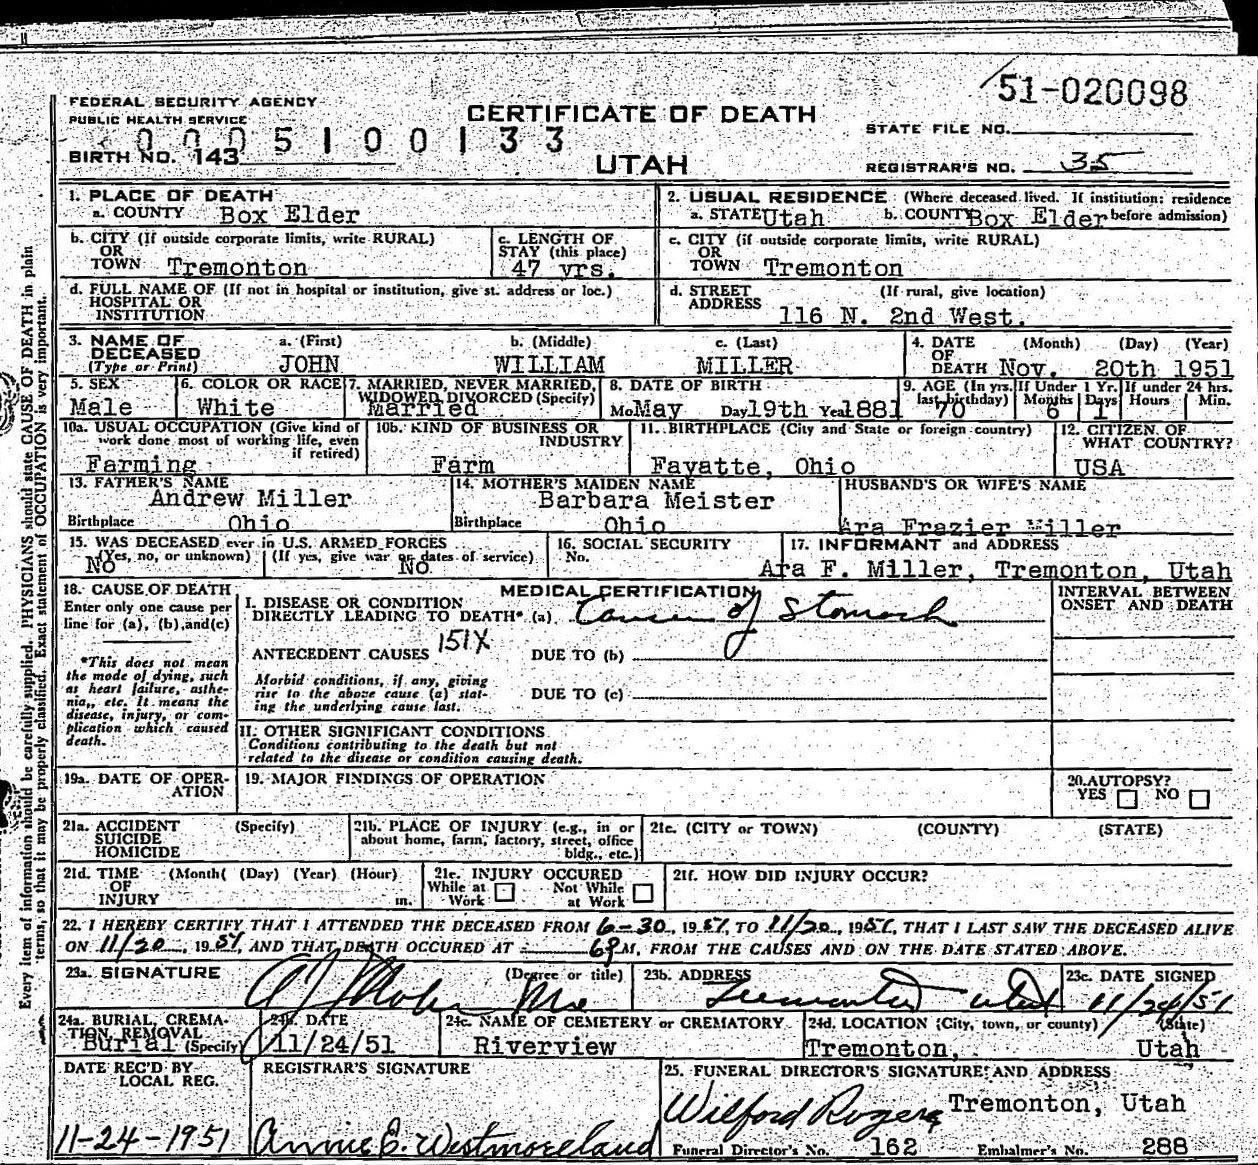 51-020098
FEDERAL SECURITY AGENCY
PUBLIC HEALTH SERVICE
CERTIFICATE OF DEATH
0005100133
STATE FILE NO.
BIRTH NO. 143
UTAH
REGISTRAR'S NO. 35
1. PLACE OF DEATH
a. COUNTY Box Elder
2. USUAL RESIDENCE (Where deceased lived. If institution: residence before admission)
a. STATE Utah b. COUNTY Box Elder
b. CITY (If outside corporate limits, write RURAL) OR TOWN Tremonton
c. LENGTH OF STAY (this place) 47 yrs.
c. CITY (if outside corporate limits, write RURAL) OR TOWN Tremonton
d. FULL NAME OF (If not in hospital or institution, give st. address or loc.) HOSPITAL OR INSTITUTION
d. STREET ADDRESS (If rural, give location) 116 N. 2nd West.
3. NAME OF DECEASED (Type or Print) a. (First) JOHN b. (Middle) WILLIAM c. (Last) MILLER
4. DATE OF DEATH (Month) (Day) (Year) Nov. 20th 1951
5. SEX Male
6. COLOR OR RACE White
7. MARRIED, NEVER MARRIED, WIDOWED DIVORCED (Specify) Married
8. DATE OF BIRTH Mo May Day 19th Year 1881
9. AGE (In yrs. last birthday) 70 If Under 1 Yr. Months 6 Days 1 If under 24 hrs. Hours Min.
10a. USUAL OCCUPATION (Give kind of work done most of working life, even if retired) Farming
10b. KIND OF BUSINESS OR INDUSTRY Farm
11. BIRTHPLACE (City and State or foreign country) Fayatte, Ohio
12. CITIZEN OF WHAT COUNTRY? USA
13. FATHER'S NAME Andrew Miller
Birthplace Ohio
14. MOTHER'S MAIDEN NAME Barbara Meister
Birthplace Ohio
HUSBAND'S OR WIFE'S NAME
Ara Frazier Miller
15. WAS DECEASED ever in U.S. ARMED FORCES
(Yes, no, or unknown) No (If yes, give war or dates of service) No
16. SOCIAL SECURITY No.
17. INFORMANT and ADDRESS
Ara F. Miller, Tremonton, Utah
18. CAUSE OF DEATH
Enter only one cause per line for (a), (b), and (c)
*This does not mean the mode of dying, such as heart failure, asthenia,, etc. It means the disease, injury, or complication which caused death.
MEDICAL CERTIFICATION
I. DISEASE OR CONDITION DIRECTLY LEADING TO DEATH* (a) Cancer of Stomach
ANTECEDENT CAUSES 151X DUE TO (b)
Morbid conditions, if any, giving rise to the above cause (a) stating the underlying cause last.
DUE TO (c)
II. OTHER SIGNIFICANT CONDITIONS
Conditions contributing to the death but not related to the disease or condition causing death.
INTERVAL BETWEEN ONSET AND DEATH
19a. DATE OF OPERATION
19. MAJOR FINDINGS OF OPERATION
20. AUTOPSY? YES NO
21a. ACCIDENT SUICIDE HOMICIDE (Specify)
21b. PLACE OF INJURY (e.g., in or about home, farm, factory, street, office bldg., etc.)
21c. (CITY or TOWN) (COUNTY) (STATE)
21d. TIME OF INJURY (Month( (Day) (Year) (Hour) m.
21e. INJURY OCCURED While at Work Not While at Work
21f. HOW DID INJURY OCCUR?
22. I HEREBY CERTIFY THAT I ATTENDED THE DECEASED FROM 6-30, 1951, TO 11/20, 1951, THAT I LAST SAW THE DECEASED ALIVE
ON 11/20, 1951, AND THAT DEATH OCCURED AT 6P M, FROM THE CAUSES AND ON THE DATE STATED ABOVE.
23a. SIGNATURE (Degree or title)
23b. ADDRESS Tremonton Utah
23c. DATE SIGNED
24a. BURIAL, CREMATION, REMOVAL (Specify) Burial
24b. DATE 11/24/51
24c. NAME OF CEMETERY or CREMATORY Riverview
24d. LOCATION (City, town, or county) (State) Tremonton, Utah
DATE REC'D BY LOCAL REG. 11-24-1951
REGISTRAR'S SIGNATURE Annie E. Westmoreland
25. FUNERAL DIRECTOR'S SIGNATURE AND ADDRESS
Wilford Rogers Tremonton, Utah
Funeral Director's No. 162 Embalmer's No. 288
Every item of information should be carefully supplied. PHYSICIANS should state CAUSE OF DEATH in plain
terms, so that it may be properly classified. Exact statement of OCCUPATION is very important.